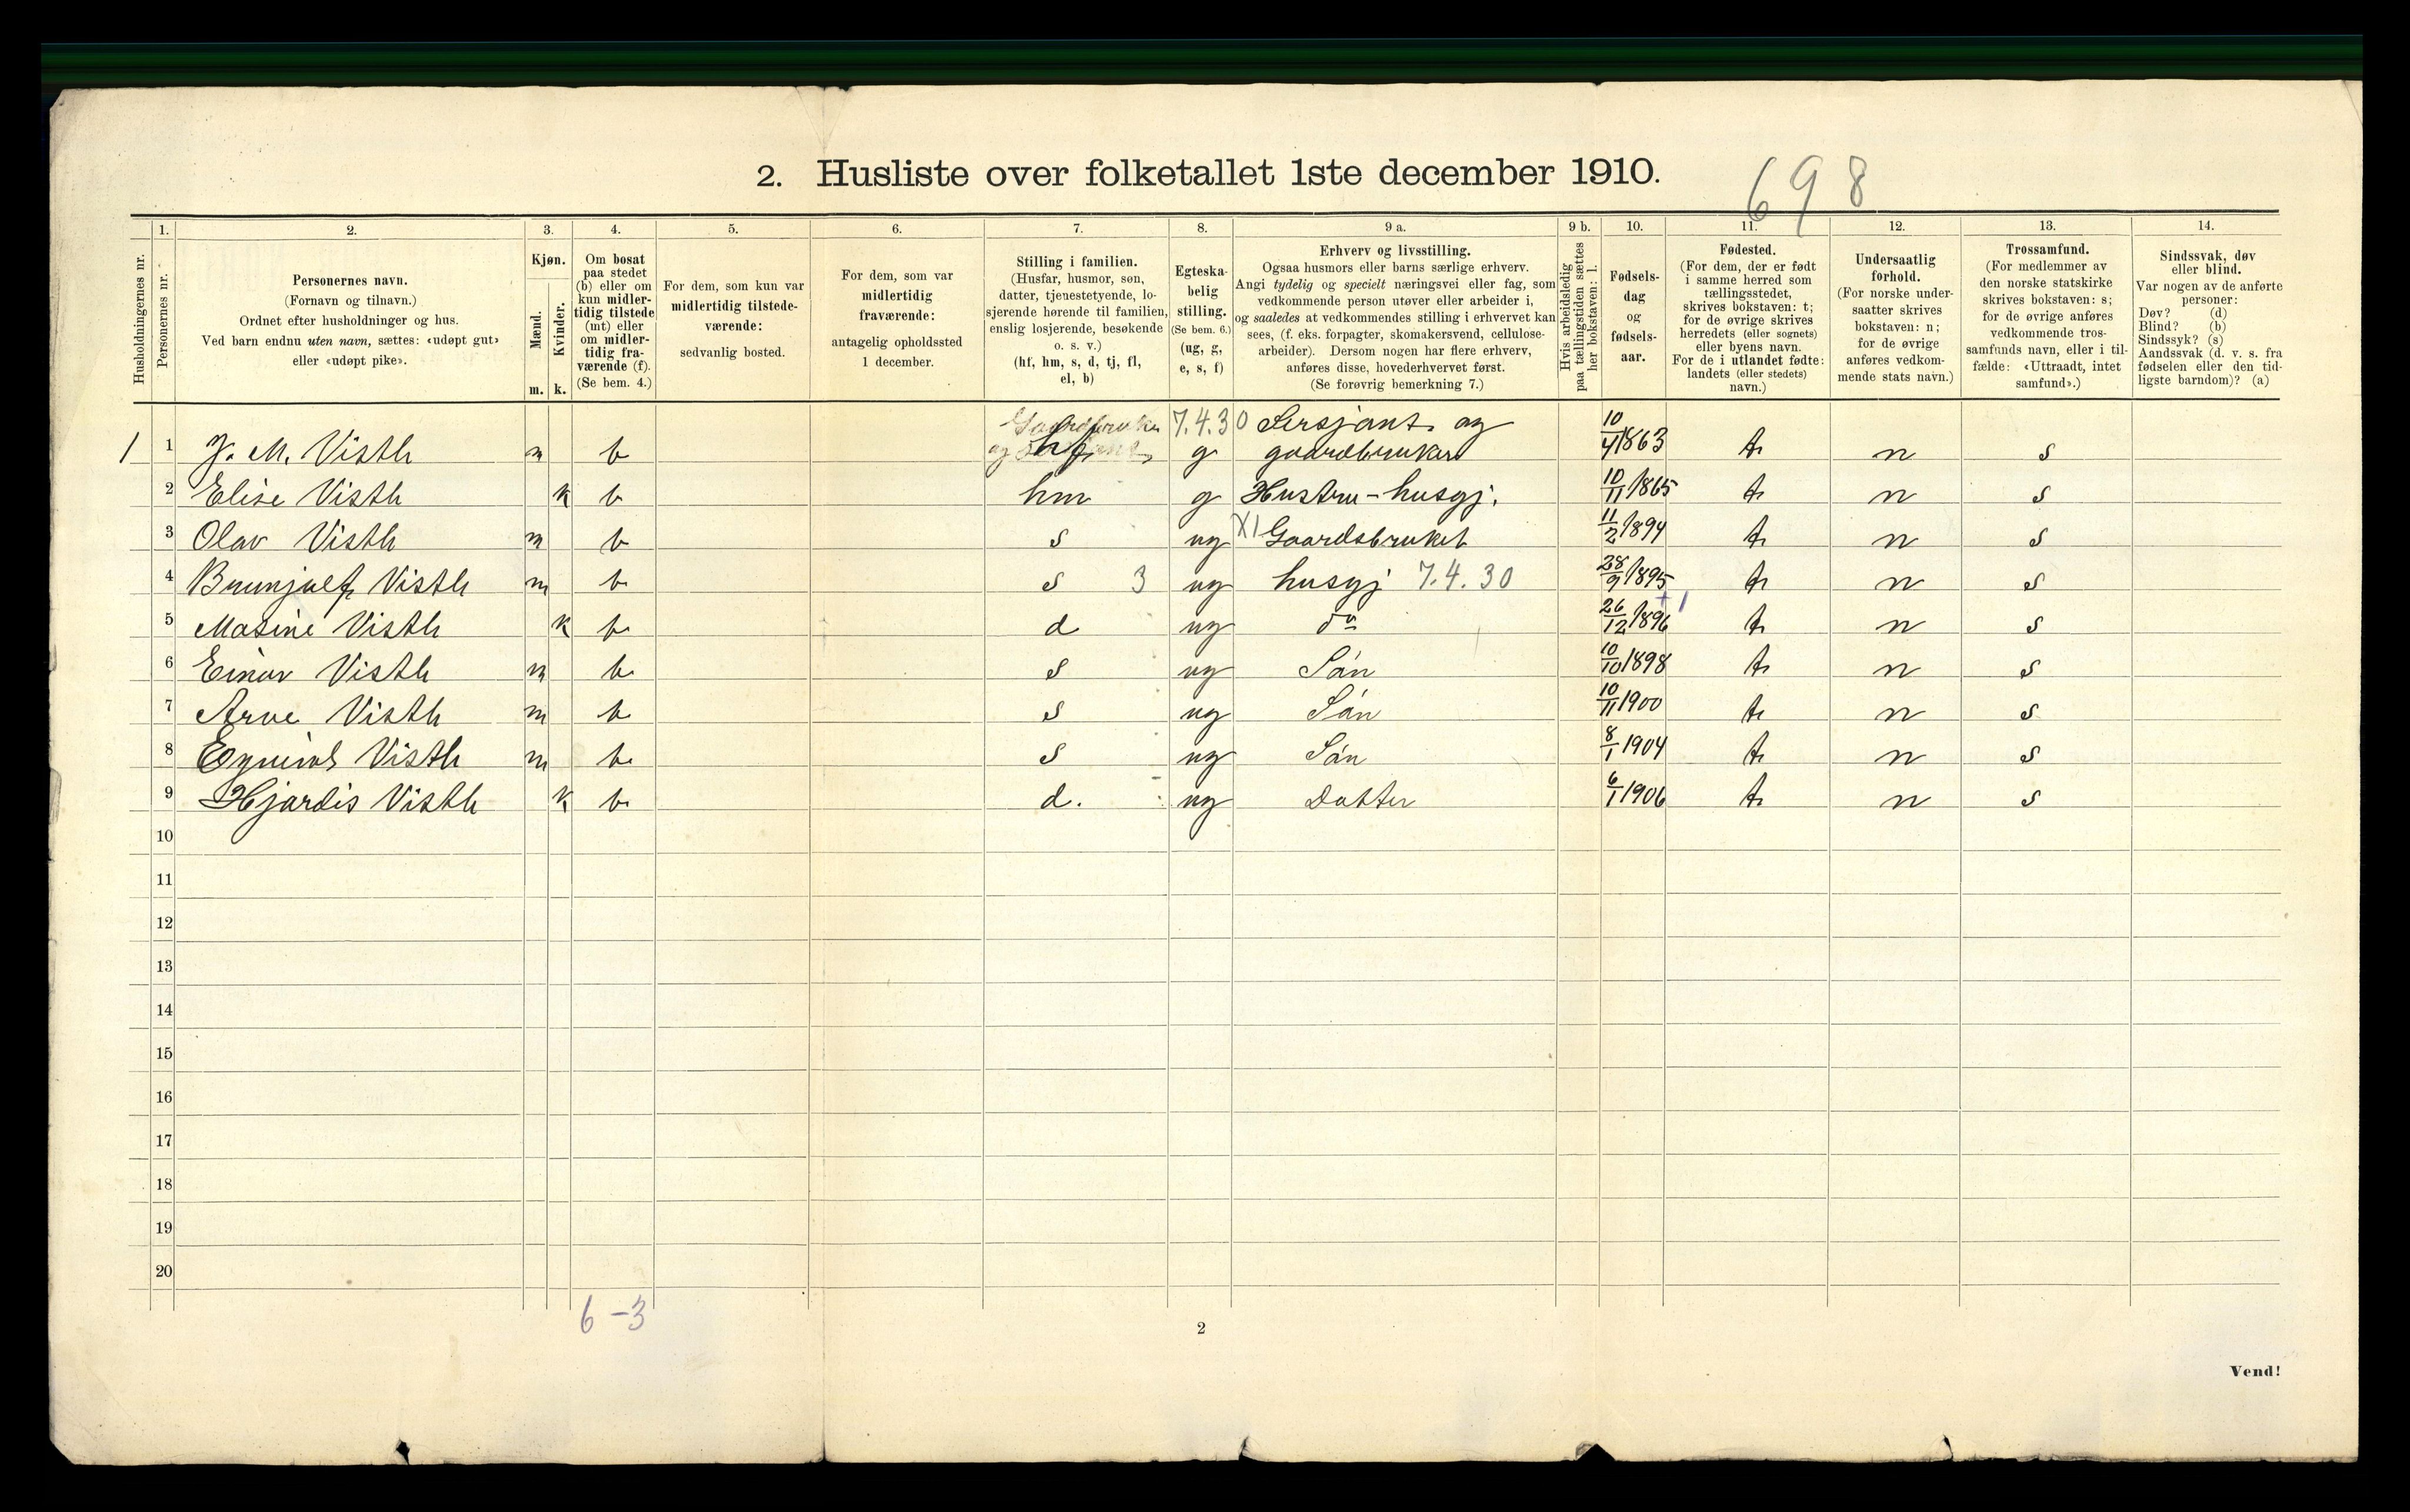 2. Husliste over folketallet 1ste december 1910.
698
Husholdningernes nr.
1.
Personernes nr.
2.
Personernes navn.
(Fornavn og tilnavn.)
Ordnet efter husholdninger og hus.
Ved barn endnu uten navn, sættes: «udøpt gut»
eller «udøpt pike».
3.
Kjøn.
Mænd.
Kvinder.
m. k.
4.
Om bosat
paa stedet
(b) eller om
kun midler-
tidig tilstede
(mt) eller
om midler-
tidig fra-
værende (f).
(Se bem. 4.)
5.
For dem, som kun var
midlertidig tilstede-
værende:
sedvanlig bosted.
6.
For dem, som var
midlertidig
fraværende:
antagelig opholdssted
1 december.
7.
Stilling i familien.
(Husfar, husmor, søn,
datter, tjenestetyende, lo-
sjerende hørende til familien,
enslig losjerende, besøkende
o. s. v.)
(hf, hm, s, d, tj, fl,
el, b)
8.
Egteska-
belig
stilling.
(Se bem. 6.)
(ug, g,
e, s, f)
9 a.
Erhverv og livsstilling.
Ogsaa husmors eller barns særlige erhverv.
Angi tydelig og specielt næringsvei eller fag, som
vedkommende person utøver eller arbeider i,
og saaledes at vedkommendes stilling i erhvervet kan
sees, (f. eks. forpagter, skomakersvend, cellulose-
arbeider). Dersom nogen har flere erhverv,
anføres disse, hovederhvervet først.
(Se forøvrig bemerkning 7.)
9 b.
Hvis arbeidsledig
paa tællingstiden sættes
her bokstaven: l.
10.
Fødsels-
dag
og
fødsels-
aar.
11.
Fødested.
(For dem, der er født
i samme herred som
tællingsstedet,
skrives bokstaven: t;
for de øvrige skrives
herredets (eller sognets)
eller byens navn.
For de i utlandet fødte:
landets (eller stedets)
navn.)
12.
Undersaatlig
forhold.
(For norske under-
saatter skrives
bokstaven: n;
for de øvrige
anføres vedkom-
mende stats navn.)
13.
Trossamfund.
(For medlemmer av
den norske statskirke
skrives bokstaven: s;
for de øvrige anføres
vedkommende tros-
samfunds navn, eller i til-
fælde: «Uttraadt, intet
samfund».)
14.
Sindssvak, døv
eller blind.
Var nogen av de anførte
personer:
Døv? (d)
Blind? (b)
Sindssyk? (s)
Aandssvak (d. v. s. fra
fødselen eller den tid-
ligste barndom)? (a)
Gaardbruker 7.4.30 Sersjant og
1 1 J. M. Visth m b hf g gaardbruker 10/4 1863 t n s
2 Elise Visth k b hm g Hustru - husgj. 10/11 1865 t n s
3 Olav Visth m b s ug X1 Gaardsbruket 11/2 1894 t n s
4 Brunjulf Visth m b s 3 ug husgj 7.4.30 28/9 1895 t n s
5 Masine Visth k b d ug do 26/12 1896 +1 t n s
6 Einar Visth m b s ug Søn 10/10 1898 t n s
7 Arne Visth m b s ug Søn 10/11 1900 t n s
8 Visth m b s ug Søn 8/1 1904 t n s
9 Hjardis Visth k b d. ug Datter 6/1 1906 t n s
10
11
12
13
14
15
16
17
18
19
20
6-3
2
Vend!